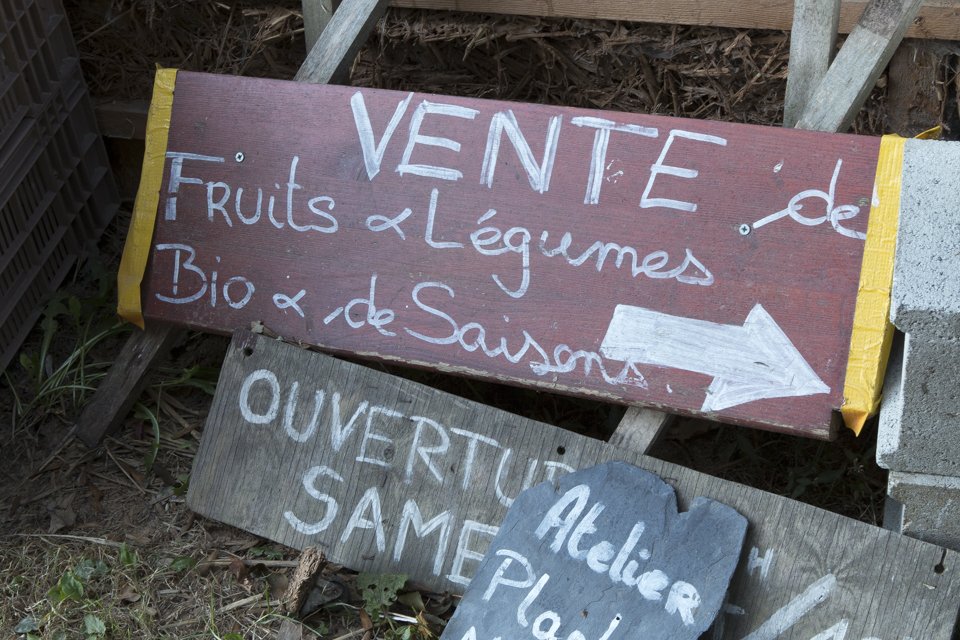 VENTE de
Fruits & Légumes
Bio & de Saisons
OUVERTU
SAME
Atelier